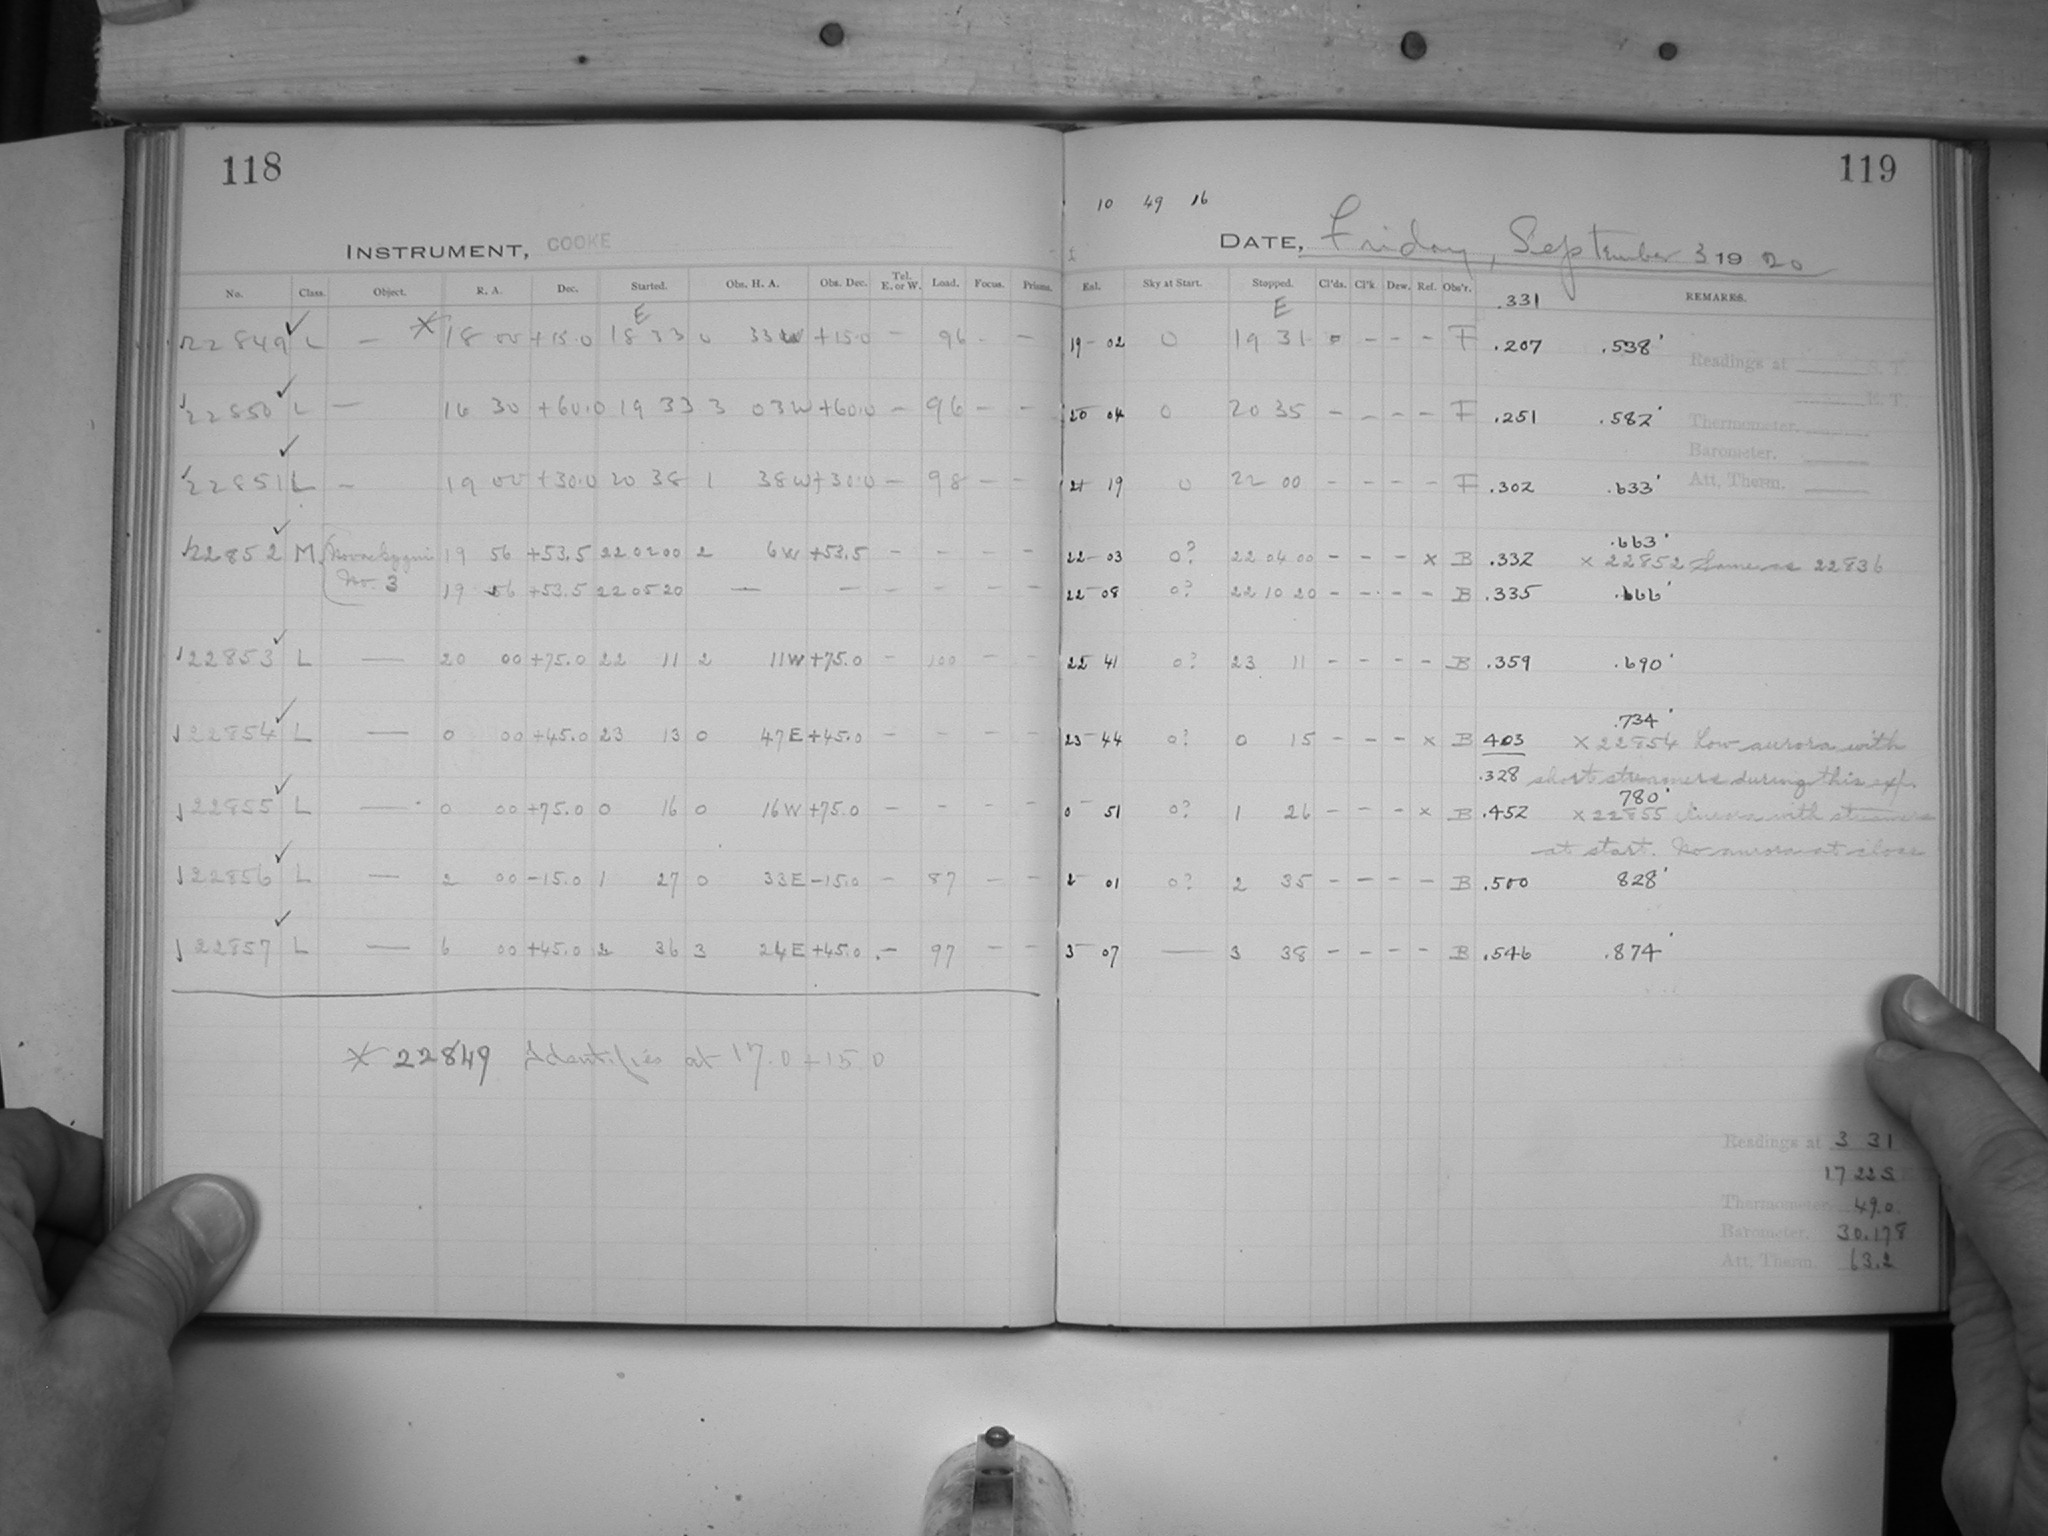 118
INSTRUMENT, COOKE
No. Class. Object. R. A. Dec. Started. Obs. H. A. Obs. Dec. Tel. E. or W. Load. Focus. Prisms.
E
22849 L — * 18 00 +15.0 18 33 0 33 W +15.0 — 96 - —
22850 L — 16 30 +60.0 19 33 3 03 W +60.0 — 96 — —
22851 L — 19 00 +30.0 20 38 1 38 W +30.0 — 98 — —
22852 M Nova Cygni 19 56 +53.5 22 02 00 2 6 W +53.5 - - - -
No. 3 19 56 +53.5 22 05 20 — — - - - -
22853 L — 20 00 +75.0 22 11 2 11 W +75.0 - 100 - -
22854 L — 0 00 +45.0 23 13 0 47 E +45.0 - - - -
22855 L — 0 00 +75.0 0 16 0 16 W +75.0 - - - -
22856 L — 2 00 -15.0 1 27 0 33 E -15.0 - 87 - -
22857 L — 6 00 +45.0 2 36 3 24 E +45.0 - 97 - -
* 22849 Identifies at 17.0 +15.0
119
10 49 16
DATE, Friday, September 3 19 20
Ext. Sky at Start. Stopped. Cl'ds. Cl'k Dew. Ref. Obs'r. REMARKS.
E .331
19 02 0 19 31 - - - - F .207 .538
Readings at S. T.
E. T.
20 04 0 20 35 - - - - F .251 .582
Thermometer.
Barometer.
21 19 0 22 00 - - - - F .302 .633
Att. Therm.
.663
22 03 0? 22 04 00 - - - x B .332 x 22852 Same as 22836
22 08 0? 22 10 20 - - - - B .335 .666
22 41 0? 23 11 - - - - B .359 .690
.734
23 44 0? 0 15 - - - x B 403 x 22854 Low aurora with
.328 short streamers during this exp.
780
0 51 0? 1 26 - - - x B .452 x 22855 Aurora with streamers
at start. No aurora at close
2 01 0? 2 35 - - - - B .500 828
3 07 — 3 38 - - - - B .546 .874
Readings at 3 31
17 22 S
Thermometer 49.0
Barometer. 30.178
Att. Therm. 63.2